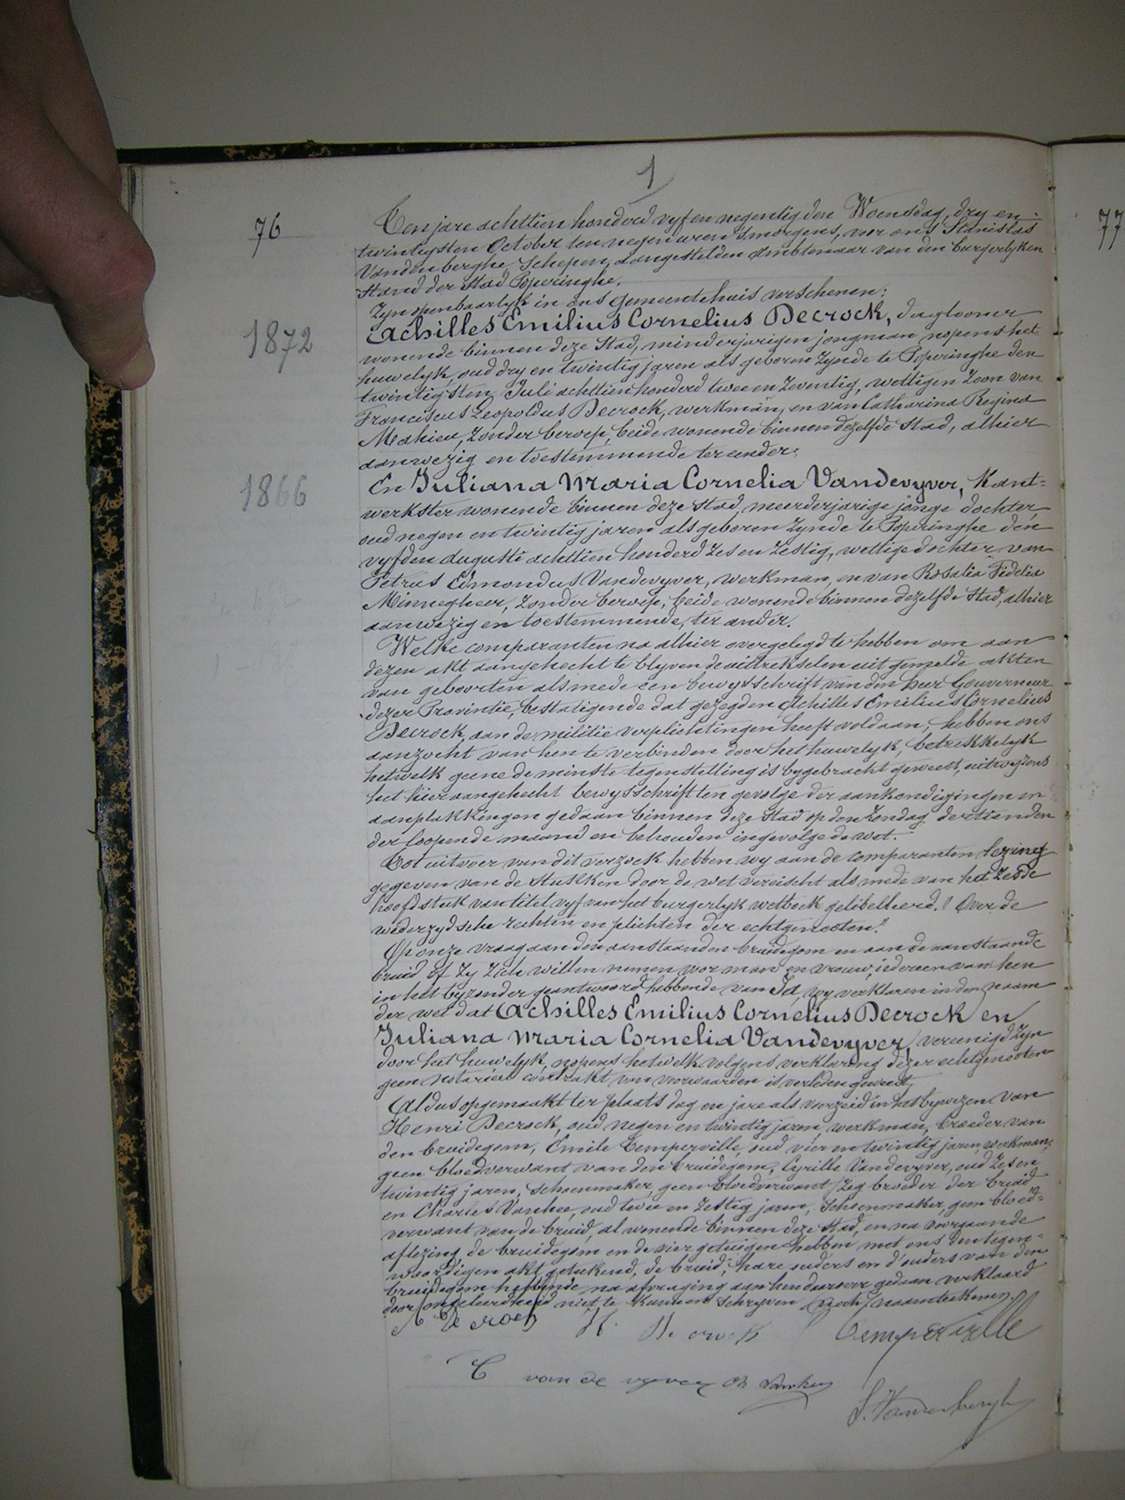 1
76
77
Ten jare achttien honderd vyf en negentig den Woensdag, dry en
twintigsten October ten negen uren 's morgens, voor ons Stanislas
Vandenberghe Schepen, aangestelden Ambtenaar van den burgerlyken
Stand der Stad Poperinghe.
Zyn openbaarlyk in ons Gemeentehuis verschenen:
1872
Achilles Emilius Cornelius Decrock, daglooner
wonende binnen deze Stad, minderjarigen jongman nopens het
huwelyk, oud dry en twintig jaren als geboren zynde te Poperinghe den
twintigsten Juli achttien honderd twee en zeventig, wettigen zoon van
Franciscus Leopoldus Decrock, werkman, en van Catharina Regina
Mahieu, zonder beroep, beide wonende binnen dezelfde Stad, alhier
aanwezig en toestemmende ter eender;
1866
En Juliana Maria Cornelia Vandevyver, Kant=
werkster wonende binnen deze Stad, meerderjarige jonge dochter
oud negen en twintig jaren als geboren zynde te Poperinghe den
vyfden Augusti achttien honderd zes en zestig, wettige dochter van
Petrus Edmondus Vandevyver, werkman, en van Rosalia Fidelia
Minnegheer, zonder beroep, beide wonende binnen dezelfde Stad, alhier
aanwezig en toestemmende, ter ander.
Welke comparanten na alhier overgelegd te hebben om aan
dezen akt aangehecht te blyven de uittrekselen uit gemelde akten
van geboorten alsmede een bewysschrift van den heer Gouverneur
dezer Provintie, bestatigende dat gezegden Achilles Emilius Cornelius
Decrock aan de militie verplichtingen heeft voldaan, hebben ons
aanzocht van hen te verbinden door het huwelyk betrekkelyk
hetwelk geene de minste tegenstelling is bygebracht geweest, uitwyzens
het hier aangehecht bewysschrift ten gevolge der aankondigingen en
aanplakkingen gedaan binnen deze Stad op den Zondag dertienden
der loopende maand en behouden ingevolge de wet.
Tot uitvoer van dit verzoek hebben wy aan de comparanten lezing
gegeven van de stukken door de wet vereischt als mede van het zesde
hoofdstuk van titel vyf van het burgerlyk wetboek gelibelleerd: "Over de
wederzydsche rechten en plichten der echtgenooten."
Op onze vraag aan den aanstaanden bruidegom en aan de aanstaande
bruid of zy zich willen nemen voor man en vrouw, iedereen van hen
in het byzonder geantwoord hebbende van Ja, wy verklaren in den naam
der wet dat Achilles Emilius Cornelius Decrock en
Juliana Maria Cornelia Vandevyver, vereenigd zyn
door het huwelyk, nopens hetwelk volgens verklaring dezer echtgenooten
geen notarieel contrakt van voorwaarden is verleden geweest,
Aldus opgemaakt ter plaats dag en jare als voorzeid in het bywezen van
Henri Decrock, oud negen en twintig jaren, werkman, broeder van
den bruidegom, Emile Temperville, oud vier en twintig jaren, werkman,
geen bloedverwant van den bruidegom, Cyrille Vandevyver, oud zes en
twintig jaren, schoenmaker, geen bloedverwant, zeg broeder der bruid
en Charles Vanhee, oud twee en zestig jaren, schoenmaker, geen bloed=
verwant van de bruid, al wonende binnen deze Stad, en na voorgaande
aflezing de bruidegom en de vier getuigen hebben met ons den tegen=
woordigen akt geteekend, de bruid, hare ouders en d'ouders van den
bruidegom hebbende na afvraging aan hen daarover gedaan verklaard
door ongeleerdheid niet te kunnen schryven noch naamteekenen
A De crock H. De crock Temperville
C van de vyver Ch Vanhee
S. Vandenberghe